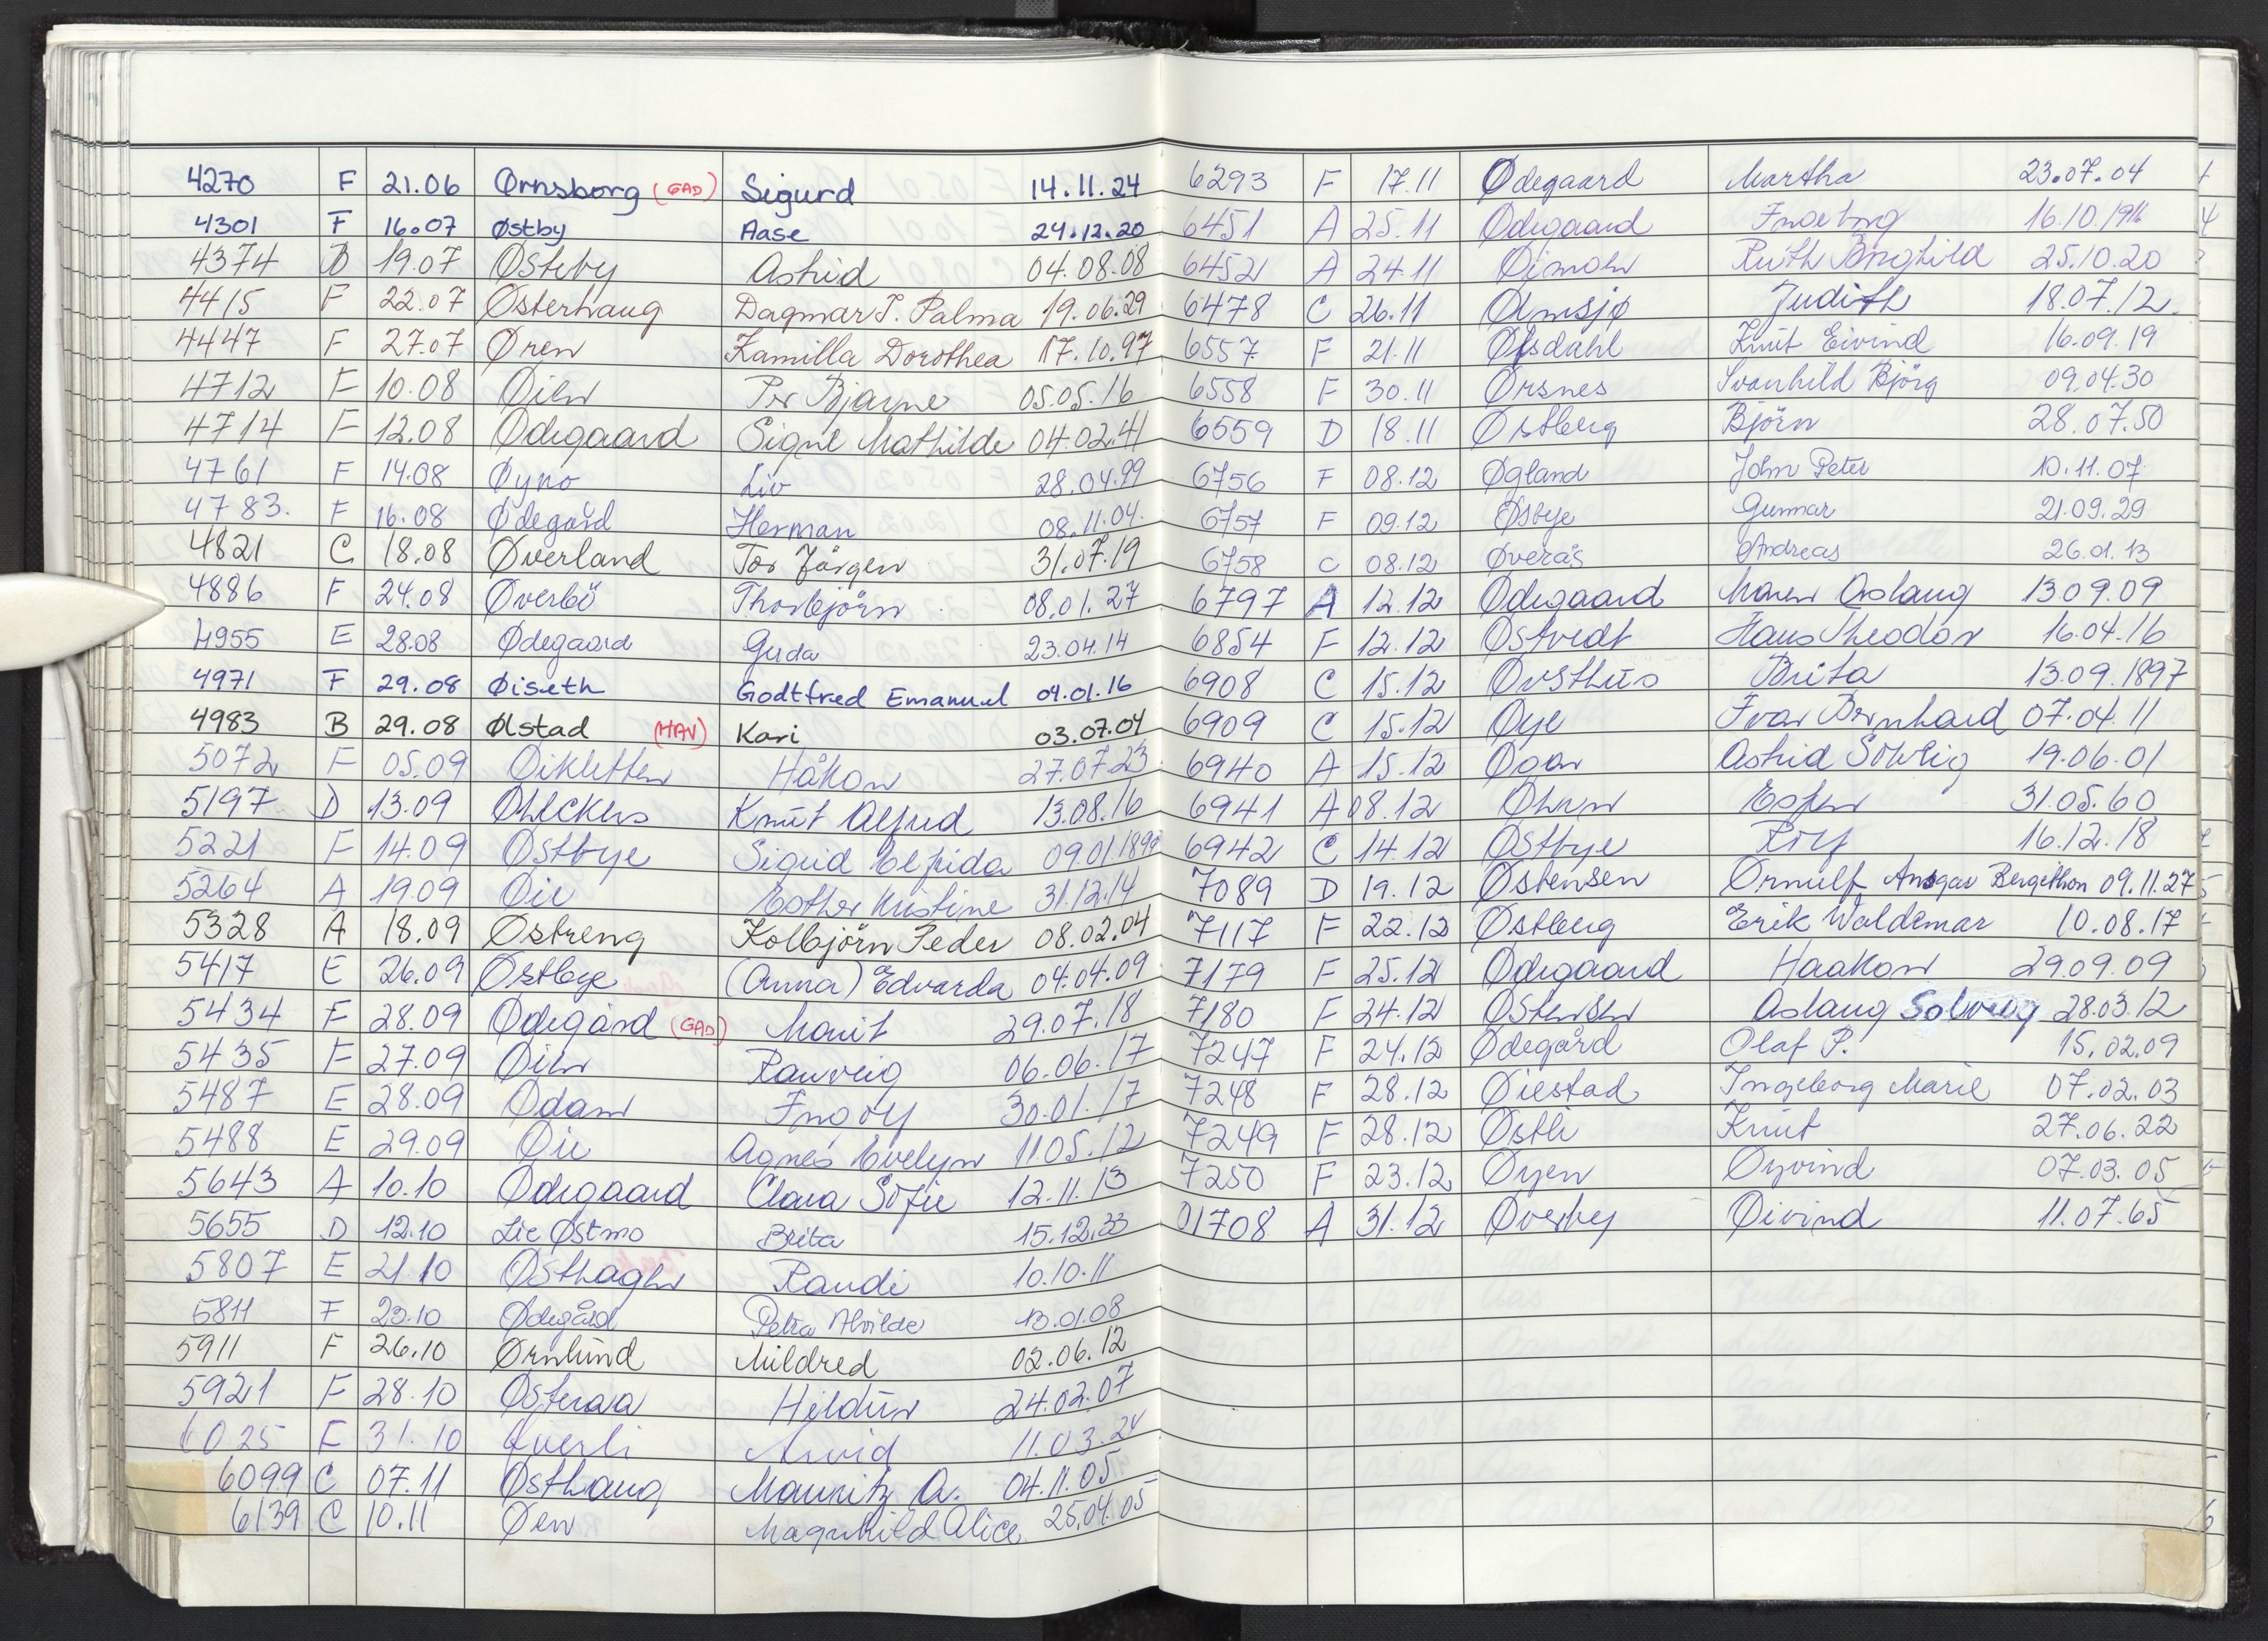 4270 F 21.06 Ørnsborg (GAD) Sigurd 14.11.24
4301 F 16.07 Østby Aase 24.12.20
4374 B 19.07 Østeby Astrid 04.08.08
4415 F 22.07 Østerhaug Dagmar J. Palma 19.06.29
4447 F 27.07 Øren Kamilla Dorothea 17.10.97
4712 F 10.08 Øien Per Bjarne 05.05.16
4714 F 12.08 Ødegaard Signe Mathilde 04.02.41
4761 F 14.08 Øyno Liv 28.04.99
4783. F 16.08 Ødegård Herman 08.11.04.
4821 C 18.08 Øverland Tor Jörgen 31.07.19
4886 F 24.08 Øverbö Thorbjörn 08.01.27
4955 E 28.08 Ødegaard Gerda 23.04.14
4971 F 29.08 Øiseth Godtfred Emanuel 04.01.16
4983 B 29.08 Ølstad (HAV) Kari 03.07.04
5072 F 05.09 Øikletten Håkon 27.07.23
5197 D 13.09 Knut Alfred 13.08.16
5221 F 14.09 Østbye Sigrid Elfrida 09.01.1899
5264 A 19.09 Øie Esther Kristine 31.12.14
5328 A 18.09 Østreng Kolbjörn Peder 08.02.04
5417 E 26.09 Østbye (Anna) Edvarda 04.04.09
5434 F 28.09 Ødegård (GAD) Marit 29.07.18
5435 F 27.09 Øien Ranveig 06.06.17
5487 E 28.09 Ødam Ingoy 30.01.17
5488 E 29.09 Øie Agnes Evelyn 11.05.12
5643 A 10.10 Ødegaard Clara Sofie 12.11.13
5655 D 12.10 Lie Østmo Brita 15.12.33
5807 E 21.10 Østhagen Randi 10.10.11
5811 F 23.10 Ødegård Petra Alvilde 13.01.08
5911 F 26.10 Ørnlund Mildred 02.06.12
5921 F 28.10 Østeraa Hildur 24.02.07
6025 F 31.10 Øverli Arvid 11.03.24
6099 C 07.11 Østhaug Mauritz A. 04.11.05
6139 C 10.11 Øen Magnhild Alice 25.04.05
6293 F 17.11 Ødegaard Martha 23.07.04
6451 A 25.11 Ødegaard Ingeborg 16.10.1916
6452 A 24.11 Øimoen Ruth Borghild 25.10.20
6478 C 26.11 Ølmsjø Judith 18.07.12.
6557 F 21.11 Øfsdahl Knut Eivind 16.09.19
6558 F 30.11 Ørsnes Svanhild Björg 09.04.30
6559 D 18.11 Østberg Björn 28.07.50
6756 F 08.12 Øgland John Peter 10.11.07
6757 F 09.12 Østbye Gunnar 21.09.29
6758 C 08.12 Øverås Andreas 26.01.13
6797 A 12.12 Ødegaard Maren Aslaug 13.09.09
6854 F 12.12 Østvedt Hans Theodor 16.04.16
6908 C 15.12 Øvsthus Brita 13.09.1897
6909 C 15.12 Øye Ivar Bernhard 07.04.11
6940 A 15.12 Astrid Solveig 19.06.01
6941 A 08.12 Espen 31.05.60
6942 C 14.12 Østbye Rolf 16.12.18
7089 D 19.12 Østensen Ørnulf Ansgar Bergithon 09.11.27
7117 F 22.12 Østberg Erik Waldemar 10.08.17
7179 F 25.12 Ødegaard Haakon 29.09.09
7180 F 24.12 Østensen Aslaug Solveig 28.03.12
7247 F 24.12 Ødegård Olaf P. 15.02.09
7248 F 28.12 Øiestad Ingeborg Marie 07.02.03
7249 F 28.12 Østli Knut 27.06.22
7250 F 23.12 Øyen Øyvind 07.03.05
01708 A 31.12 Øverby Øivind 11.07.65